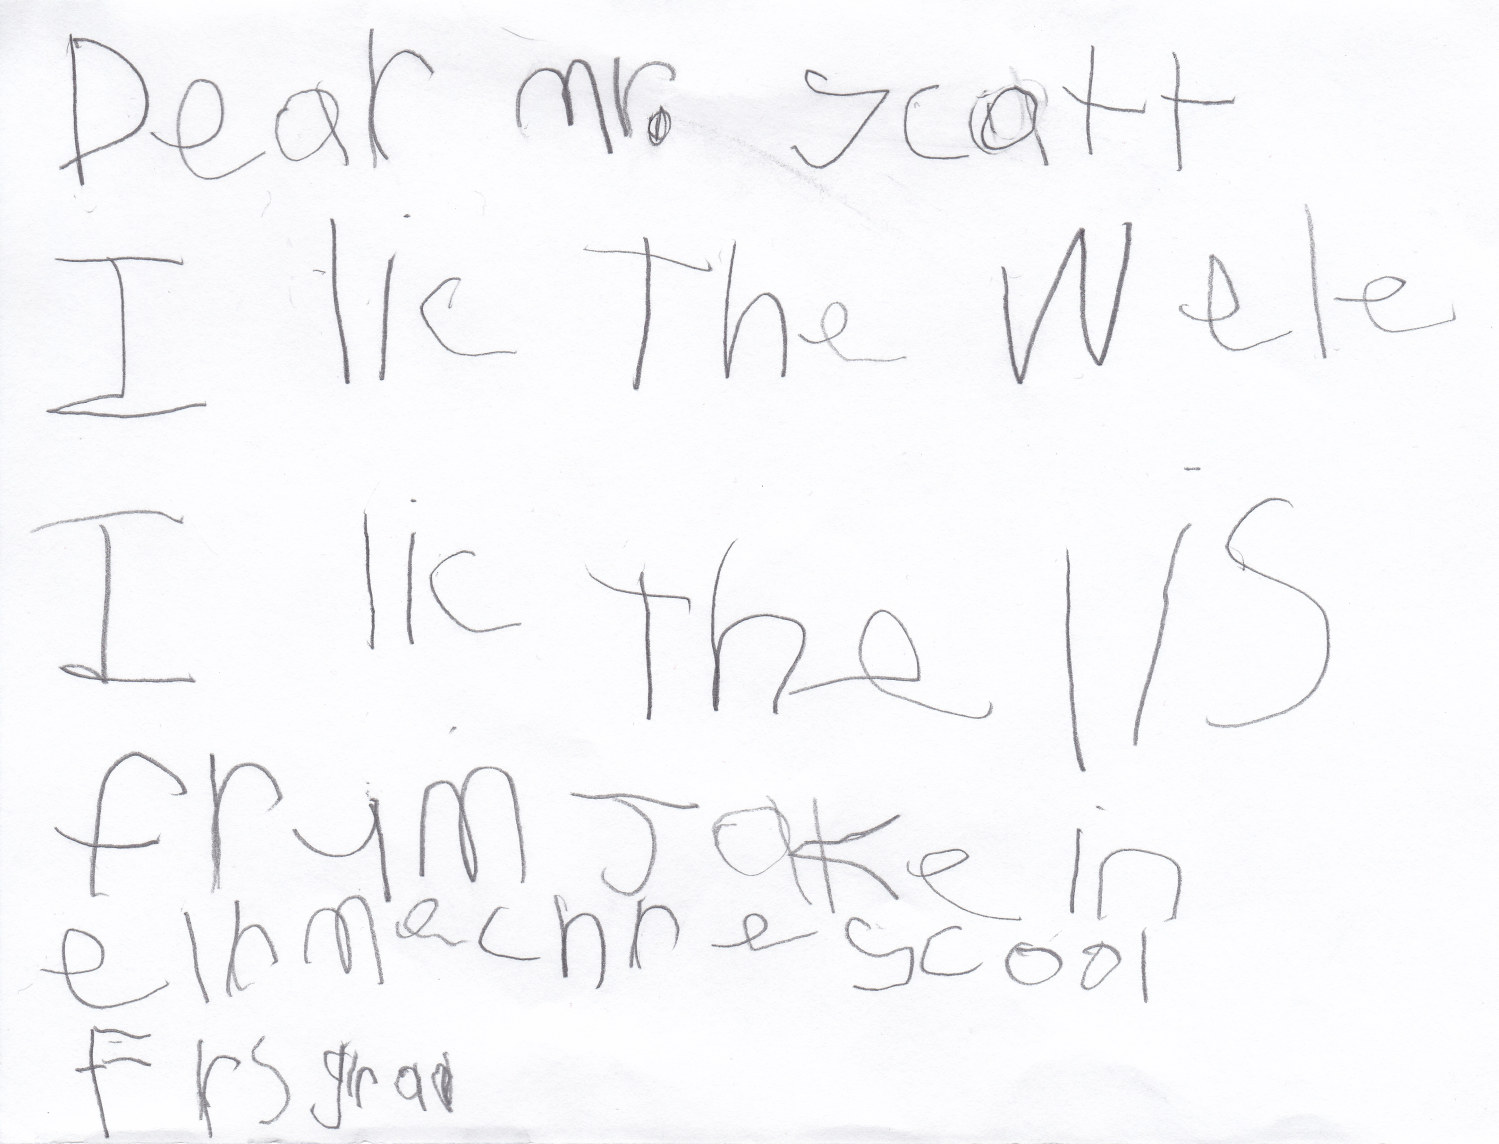 Dear mr. scott
I lic The Wele
I lic the IIS
frym Jake in
elnmecnne scool
Frs grad